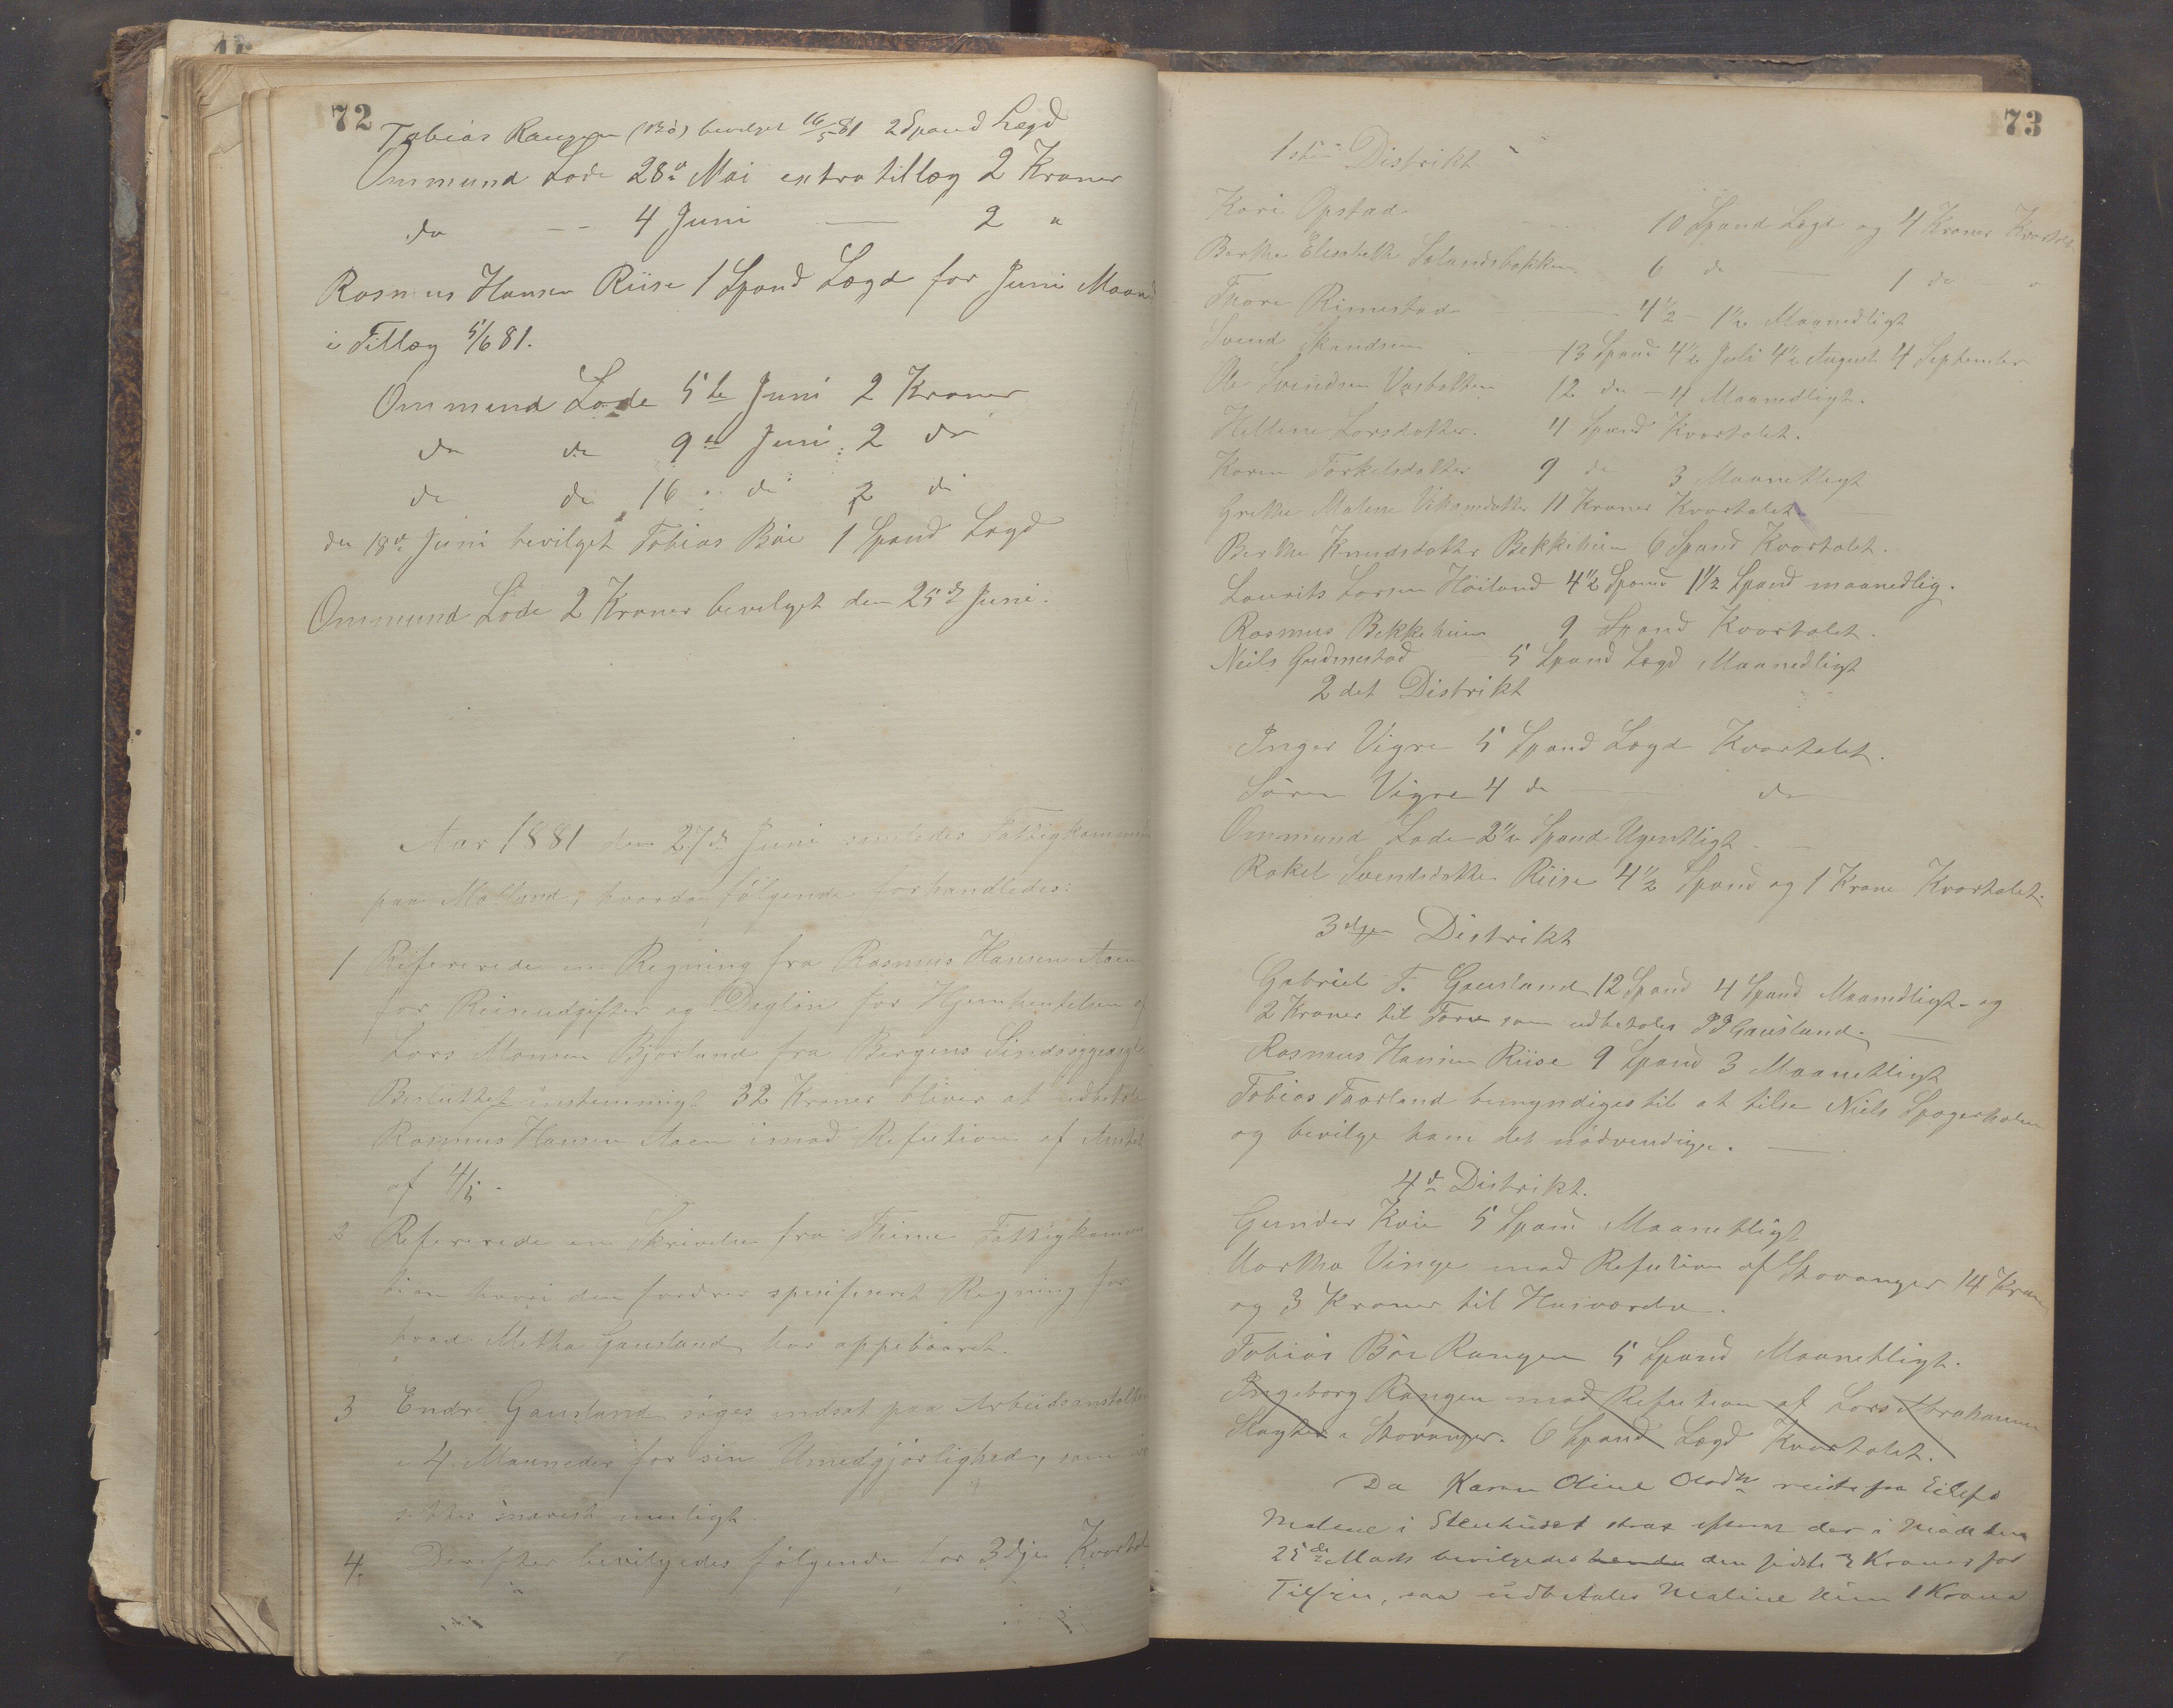 72
Tobias Rangen (Bö) bevilget 16/5 81 2 Spand Legd
Ommund Lode 28de Mai extra tillæg 2 Kroner
do -- 4 Juni — 2 "
Rasmus Hansen Riise 1 Spand Lægd for Juni Maaned
i Tillæg 5/6 81.
Ommund Lode 5te Juni 2 Kroner
do do 9de Juni 2 do
do do 16 " do 2 do
den 18de Juni bevilget Tobias Böe 1 Spand Lægd
Ommund Lode 2 Kroner bevilget den 25de Juni.
Aar 1881 den 27de Juni samledes Fattigkommis
paa Motland, hvorda fölgende forhandledes:
1 Refererede en Regning fra Rasmus Hansen Aaen
for Reiseudgifter og Daglön for Hjemhentelsen af
Lars Monsen Bjorland fra Bergens Sindssygeasyl
Besluttet enstemmigt 32 Kroner bliver at udbetale
Rasmus Hansen Aaen imod Refution af Amtet
af 4/5.
2 Refererede en Skrivelse fra Thime Fattigkommis
tion hvori den fordrer spesifiseret Regning for
hvad Metha Gausland har oppebaaret.
3 Endre Gausland söges indsat paa Arbeidsanstalten
i 4 Maaneder for sin Umedgjörlighed, som
snarest muligt.
4. Derefter bevilgedes fölgende for 3dje Kvartal
73
1ste Distrikt
Kari Opstad 10 Spand Lægd og 4 Kroner Kvartalet
Berthe Elisabeth Salandsbakken 6 do — 1 do "
Thore Rimestad — 4 1/2 - 1 1/2 Maanedligt
Svend Skandsen — 13 Spand 4 1/2 Juli 4 1/2 August 4 September
Ole Svendsen Vasbakken 12 do - 4 Maanedligt.
Hellene Larsdatter. 4 Spand Kvartalet.
Karen Torkelsdatter 9 do 3 Maanetligt
Grethe Malene 11 Kroner Kvartalet
Berthe Knudsdatter Bekkeheien 6 Spand Kvartalet.
Laurits Larsen Höiland 4 1/2 Spand 1 1/2 Spand maanedlig.
Rasmus Bekkeheien 9 Spand Kvartalet.
Neils Gudmestad 5 Spand Lægd Maanedligt
2det Distrikt
Inger Vigre 5 Spand Lægd Kvartalet.
Sören Vigre 4 do — do
Ommund Lode 2 1/2 Spand Ugentligt.
Rakel Svendsdatter Riise 4 1/2 Spand og 1 Krone Kvartalet.
3dje Distrikt
Gabriel T. Gausland 12 Spand 4 Spand Maanedligt og
2 Kroner til Torv som udbetales P J Gausland.
Rasmus Hansen Riise 9 Spand 3 Maanetligt
Tobias Taarland bemyndiges til at tilse Niels Spagerholen
og bevilge ham det nödvendige.
4de Distrikt.
Gunder Kvie 5 Spand Maanetligt
Martha Vinge mod Refution af Stavanger 14 Kroner
og 3 Kroner til Husværdve.
Tobias Böe Rangen 5 Spand Maanetligt.
Ingeborg Rangen mod Refution af Lars Abrahamsen
Slagter i Stavanger. 6 Spand Lægd Kvartalet.
Da Karen Oline Olsdtr reiste fra Eilefs
Malene i Stenhuset strax efterat der i Möde den
25de Marts bevilgedes hende den sidste 3 Kroner for
Tilsyn, saa udbetales Malene kun 1 Krone